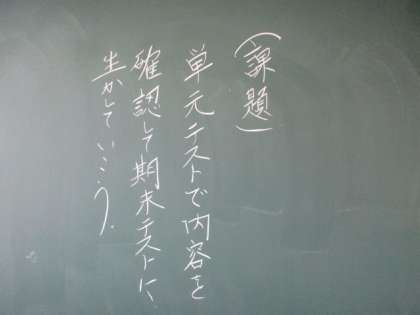 (課題)
単元テストで内容を
確認して期末テストに
生かしていこう.